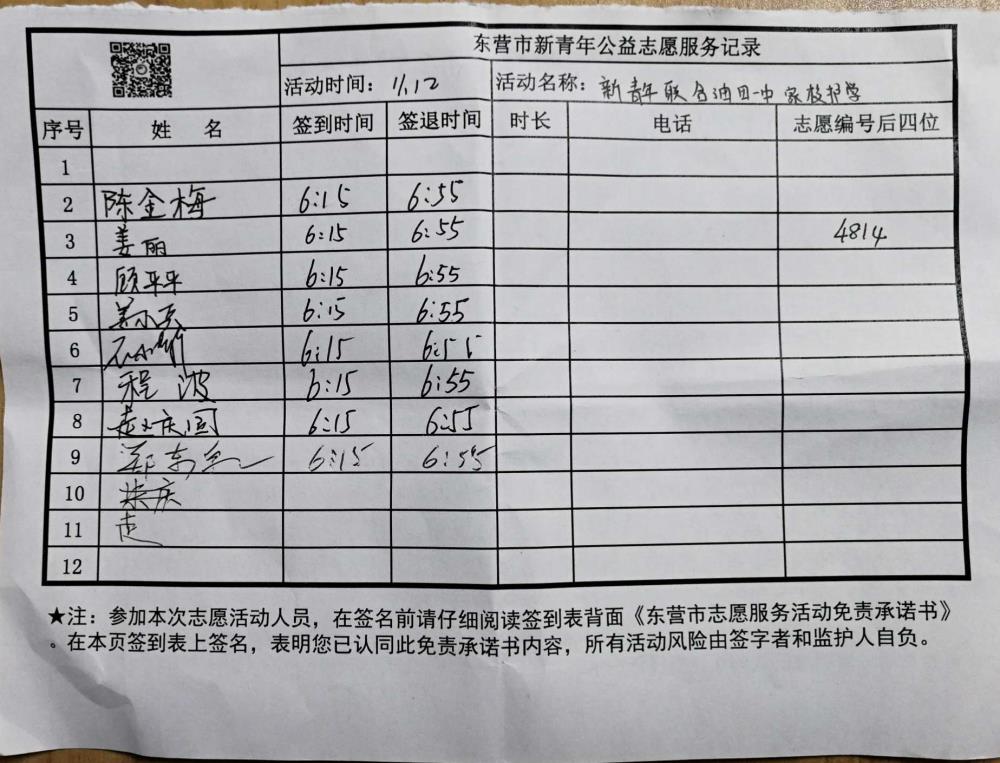 东营市新青年公益志愿服务记录
活动时间: 11.12 活动名称: 新青年联合油田一中家校护学
序号 姓 名 签到时间 签退时间 时长 电话 志愿编号后四位
1
2 陈金梅 6:15 6:55
3 姜丽 6:15 6:55 4814
4 顾平平 6:15 6:55
5 6:15 6:55
6 6:15 6:55
7 程波 6:15 6:55
8 庆国 6:15 6:55
9 郑东 6:15 6:55
10 庆
11
12
★注:参加本次志愿活动人员,在签名前请仔细阅读签到表背面《东营市志愿服务活动免责承诺书》
。在本页签到表上签名,表明您已认同此免责承诺书内容,所有活动风险由签字者和监护人自负。